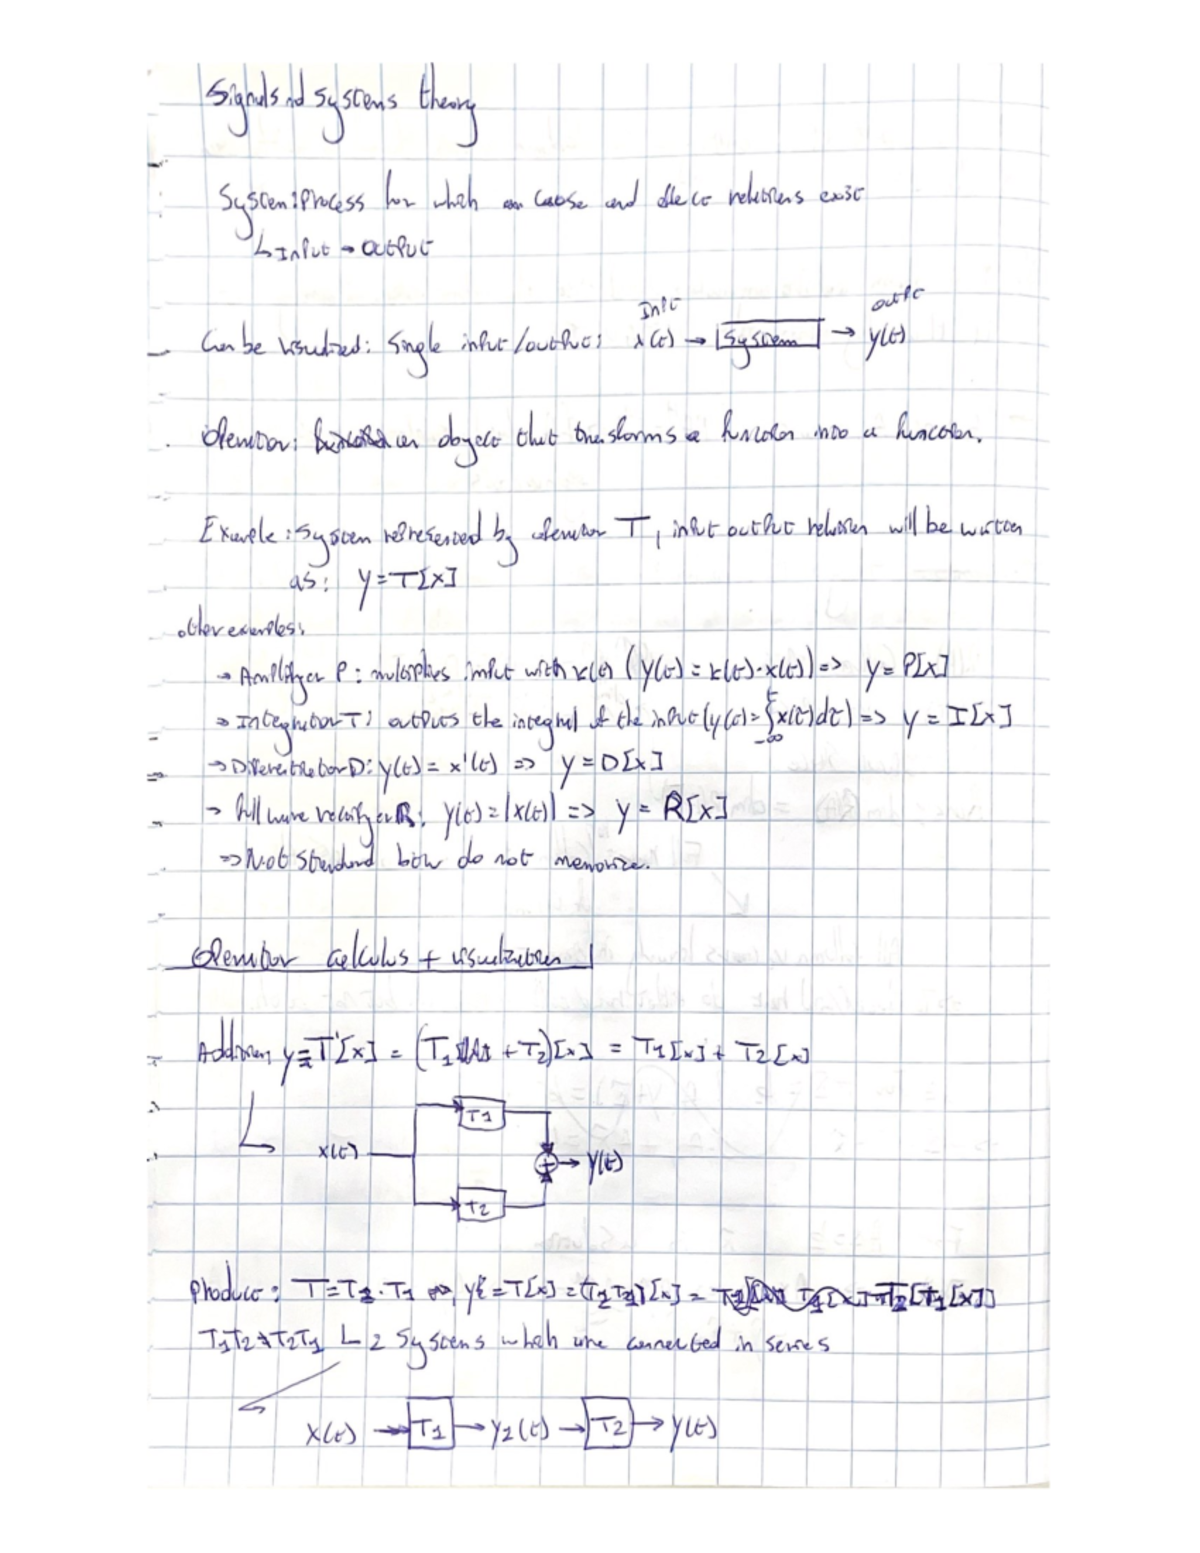 Signals nd systems theory
System: Process for which an cause and effect relations exist
↳ Input → output
Input
output
Can be visualized: Single input/output: x(t) → [System] → y(t)
Operator: an object that transforms a function into a function.
Example: System represented by operator T, input output relation will be written
as: y=T[x]
other examples:
→ Amplifyer P: multiplies input with k(t) (y(t) = k(t)·x(t)) => y = P[x]
→ Integrator I: outputs the integral of the input (y(t)=∫_{-∞}^{t} x(τ)dτ) => y = I[x]
→ Differentiator D: y(t) = x'(t) => y = D[x]
→ full wave rectifyer R: y(t) = |x(t)| => y = R[x]
=> Not standard do not memorize.
Operator calculus + visualization
Addition y=T[x] = (T1 + T2)[x] = T1[x] + T2[x]
T1
x(t)
+ → y(t)
T2
Product: T=T2·T1 y=T[x] = (T2T1)[x] = T2[T1[x]]
T1T2≠T2T1 ↳ 2 Systems which are connected in series
x(t) → T1 → y1(t) → T2 → y(t)